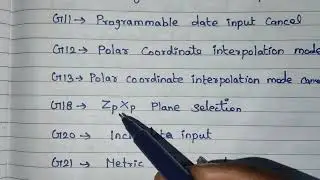 G11→ Programmable date input Cancel
G12→ Polar Coordinate interpolation mode
G13→ Polar coordinate interpolation mode
G18→ ZpXp Plane selection
G20→ input
G21→ Metric